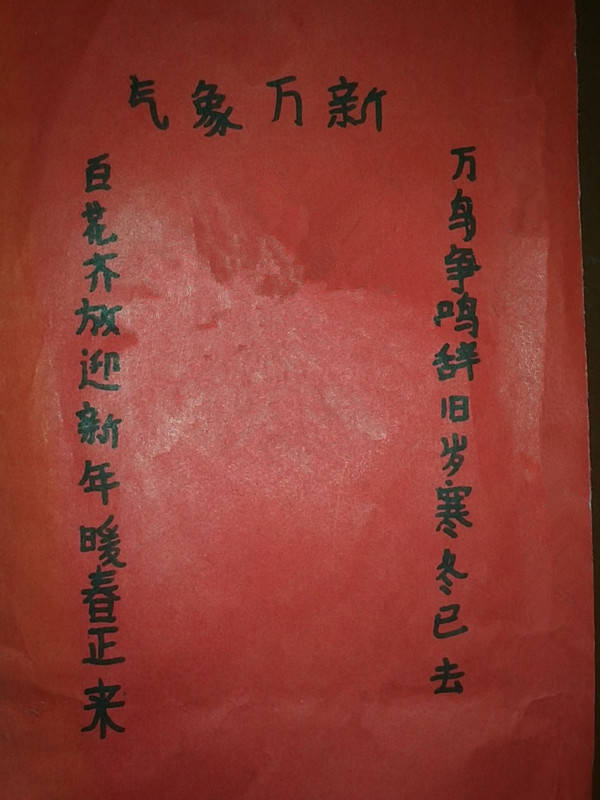 气象万新
万鸟争鸣辞旧岁寒冬已去
百花齐放迎新年暖春正来